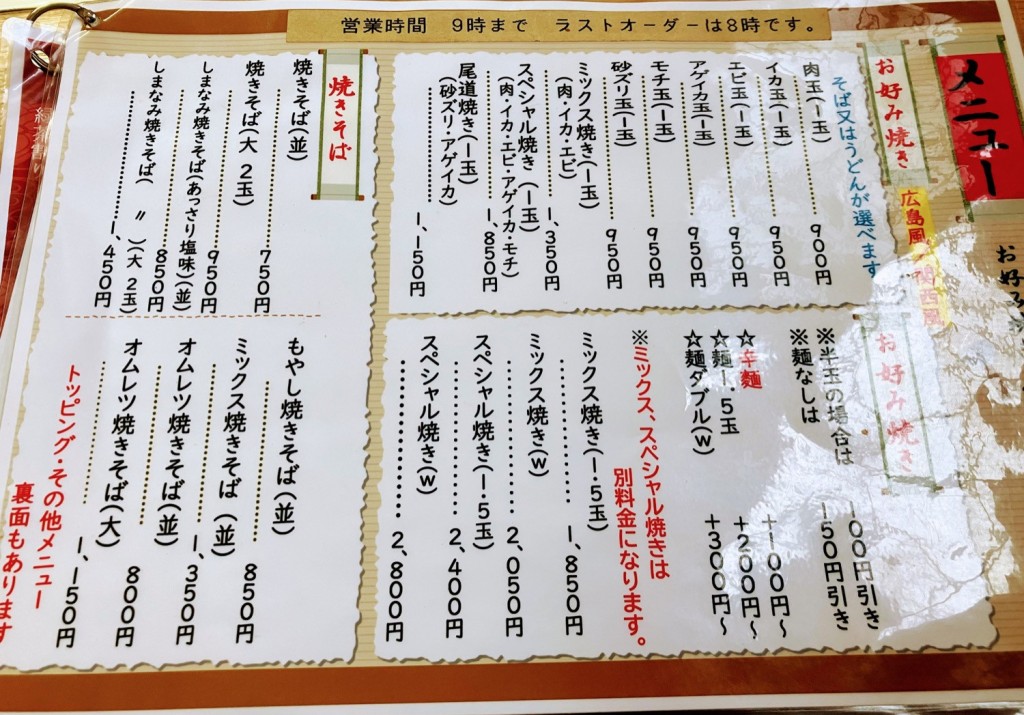 営業時間 9時まで ラストオーダーは8時です。
メニュー
お好み焼き
広島風
関西風
そば又はうどんが選べます
肉玉(一玉) 900円
イカ玉(一玉) 950円
エビ玉(一玉) 950円
アゲイカ玉(一玉) 950円
モチ玉(一玉) 950円
砂ズリ玉(一玉) 950円
ミックス焼き(一玉) 1,350円
(肉・イカ・エビ)
スペシャル焼き(一玉) 1,850円
(肉・イカ・エビ・アゲイカ・モチ)
尾道焼き(一玉) 1,150円
(砂ズリ・アゲイカ)
お好み焼き
※半玉の場合は 100円引き
※麺なしは 150円引き
☆辛麺 +100円~
☆麺1.5玉 +200円~
☆麺ダブル(w) +300円~
※ミックス、スペシャル焼きは
別料金になります。
ミックス焼き(1.5玉) 1,850円
ミックス焼き(w) 2,050円
スペシャル焼き(1.5玉) 2,400円
スペシャル焼き(w) 2,800円
焼きそば
焼きそば(並) 750円
焼きそば(大 2玉) 950円
しまなみ焼きそば(あっさり塩味)(並) 850円
しまなみ焼きそば( 〃 )(大 2玉) 1,450円
もやし焼きそば(並) 850円
ミックス焼きそば(並) 1,350円
オムレツ焼きそば(並) 800円
オムレツ焼きそば(大) 1,150円
トッピング・その他メニュー
裏面もあります